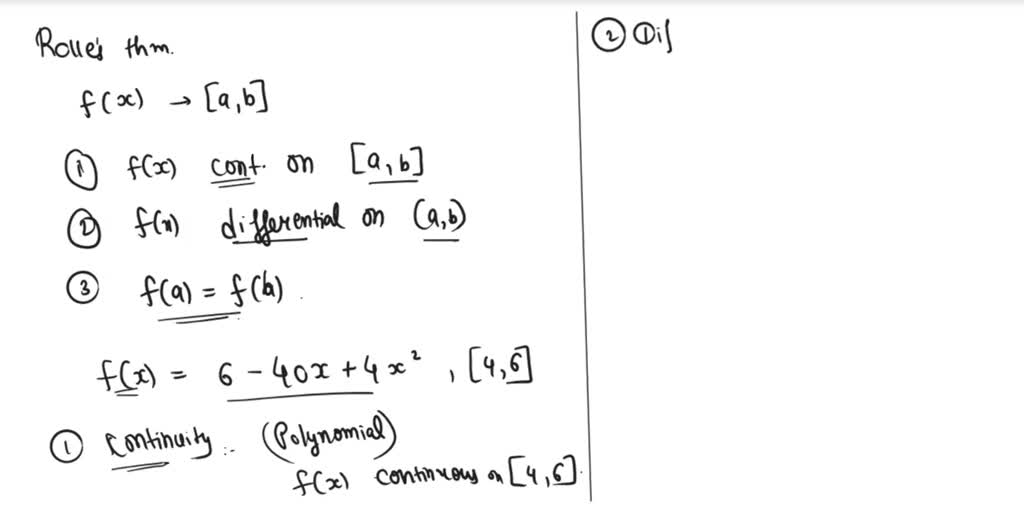 Rolle's thm.
f(x) → [a,b]
① f(x) cont. on [a,b]
② f(x) differential on (a,b)
③ f(a) = f(b).
f(x) = 6 - 40x + 4x², [4,6]
① Continuity :- (Polynomial)
f(x) continuous on [4,6].
② Dif